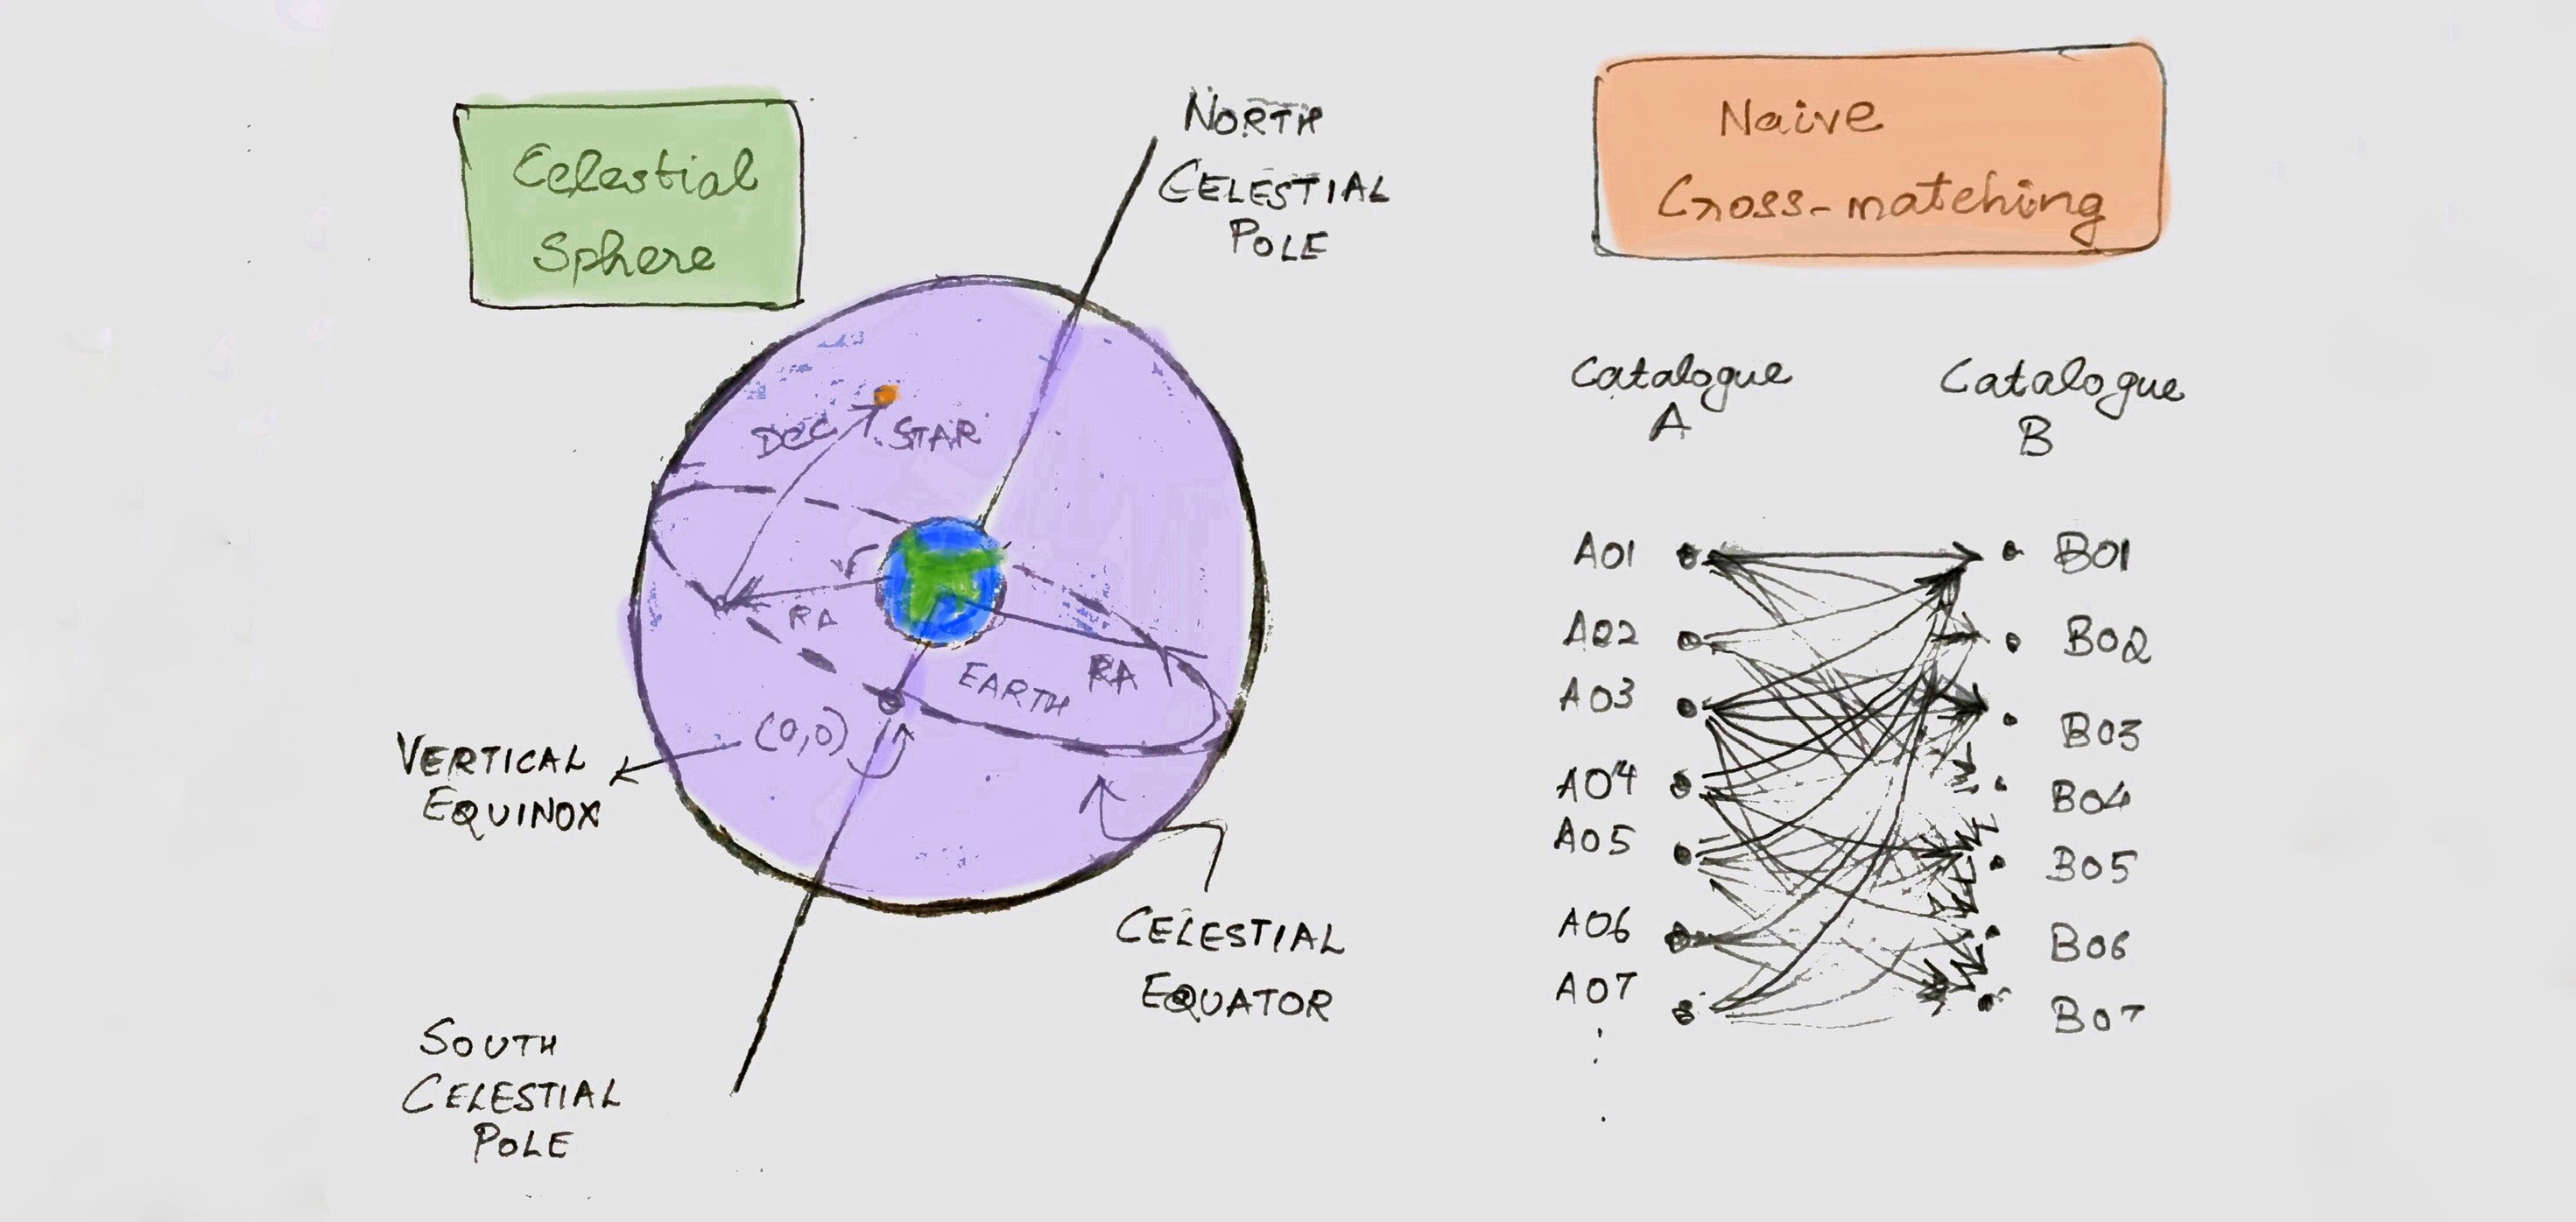 Celestial
Sphere
NORTH
CELESTIAL
POLE
DEC
STAR
RA
EARTH
RA
(0,0)
VERTICAL
EQUINOX
CELESTIAL
EQUATOR
SOUTH
CELESTIAL
POLE
Naive
Cross-matching
Catalogue
A
Catalogue
B
A01
B01
A02
B02
A03
B03
A04
B04
A05
B05
A06
B06
A07
B07